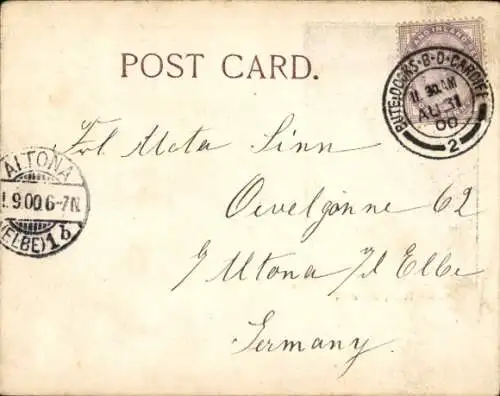 POST CARD.
BUTE·DOCKS·B·O·CARDIFF
11 30 AM
AU 31
00
2
Frl Meta Sinn
Oevelgönne 62
Altona i/d Elbe
Germany.
ALTONA
1.9 00. 6-7N
(ELBE) 1 b